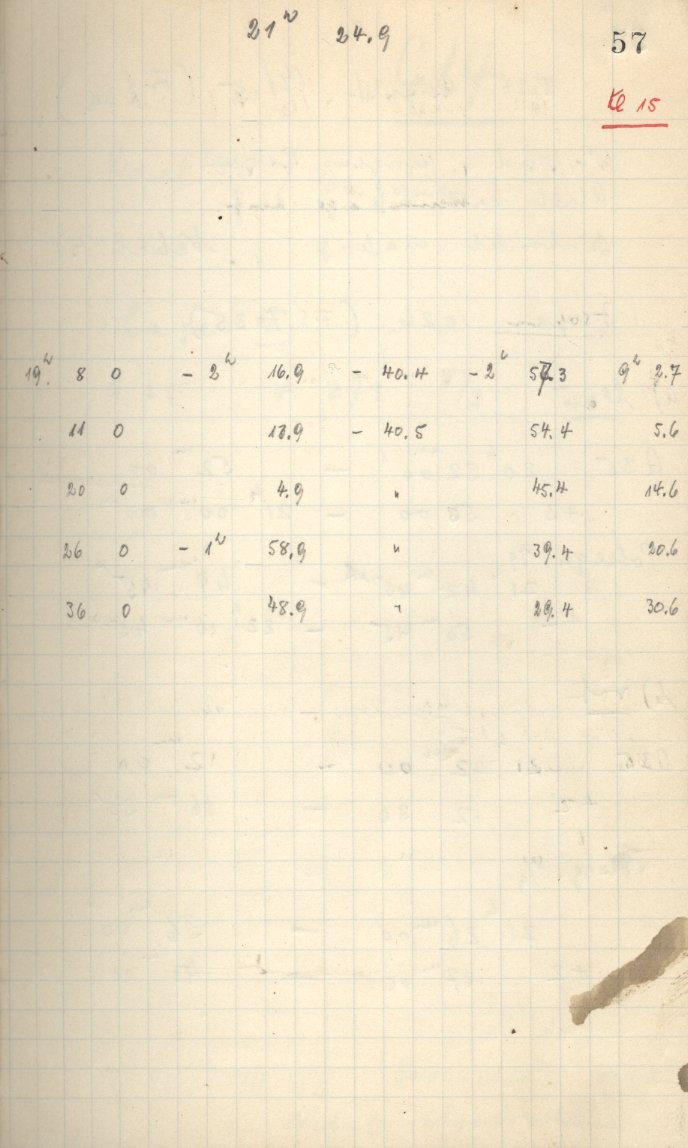 21ʰ 24.9
57
Kl 15
19ʰ 8 0 - 2ʰ 16.9 - 40.4 - 2ʰ 57.3 9ʰ 2.7
11 0 13.9 - 40.5 54.4 5.6
20 0 4.9 " 45.4 14.6
26 0 - 1ʰ 58.9 " 39.4 20.6
36 0 48.9 " 29.4 30.6